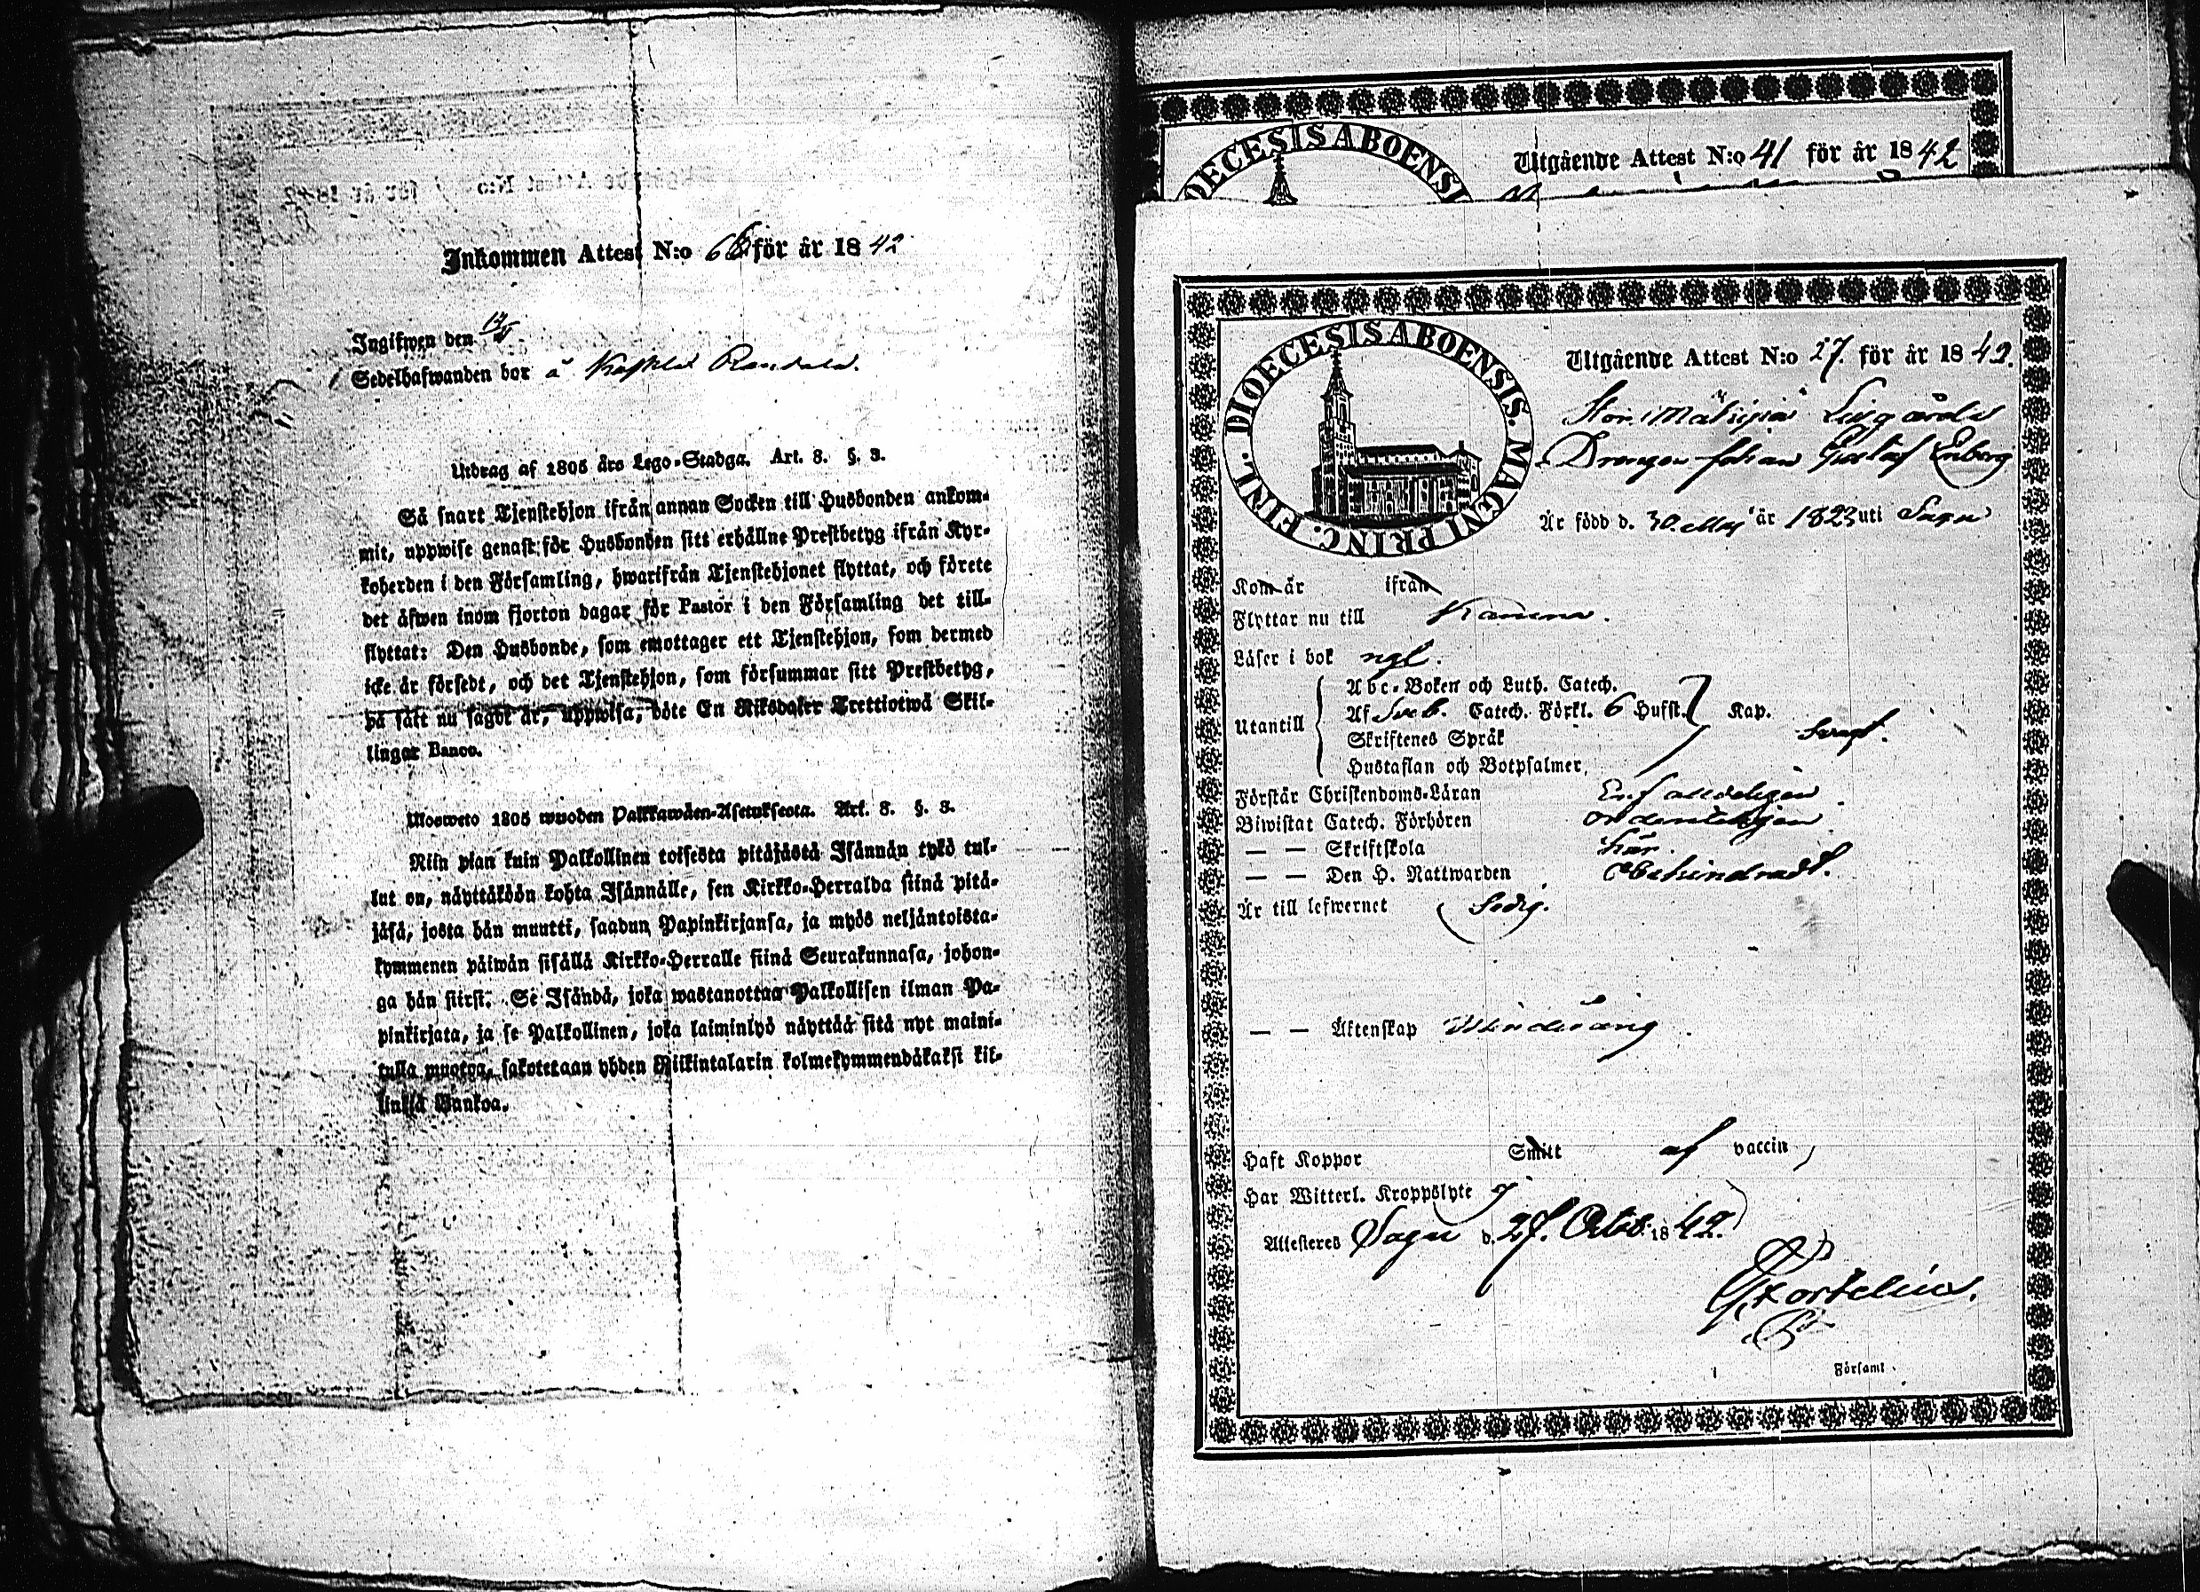 Inkommen Attest N:o 66 för år 1842
Ingifwen den
Sedelhafwanden bor å
Utdrag af 1805 års Lego-Stadga. Art. 8. §. 3.
Så snart Tjenstehjon ifrån annan Socken till Husbonden ankom-
mit, uppwise genast för Husbonden sitt erhållne Prestbetyg ifrån Kyr-
koherden i den Församling, hwarifrån Tjenstehjonet flyttat, och förete
det äfwen inom fjorton dagar för Pastor i den Församling det till-
flyttat: Den Husbonde, som emottager ett Tjenstehjon, som dermed
icke är försedt, och det Tjenstehjon, som försummar sitt Prestbetyg,
på sätt nu sagdt är, uppwisa, böte En Riksdaler Trettiotwå Skil-
lingar Banco.
Ulosweto 1805 wuoden Palkkawäen-Asetuksesta. Art. 8. §. 3.
Niin pian kuin Palkollinen toisesta pitäjästä Isännän tykö tul-
lut on, näyttäköön kohta Isännälle, sen Kirkko-Herralda siinä pitä-
jäsä, josta hän muutti, saadun Papinkirjansa, ja myös neljäntoista-
kymmenen päiwän sisällä Kirkko-Herralle siinä Seurakunnasa, johon-
ga hän siirsi: Se Isändä, joka wastanottaa Palkollisen ilman Pa-
pinkirjata, ja se Palkollinen, joka laiminlyö näyttää sitä nyt maini-
tulla muotoa, sakotetaan yhden Riikintalarin kolmekymmendäkaksi kil-
linkiä Bankoa.
DIOECESIS ABOENSI
Utgående Attest N:o 41 för år 1842
DIOECESIS ABOENSIS. MAGNI PRINC. FINL.
Utgående Attest N:o 27. för år 1842.
Drengen Johan Gustaf Enberg
Är född d. 30. Maj år 1823 uti Sagu
Kom år ifrån
Flyttar nu till
Läser i bok ngl.
Utantill
Abc-Boken och Luth. Catech.
Af Sveb. Catech. Förkl. 6 Hufst. Kap.
Skriftenes Språk
Hustaflan och Botpsalmer,
Svagt.
Förstår Christendoms-Läran Enfalldeligen
Biwistat Catech. Förhören ordenteligen
— — Skriftskola här.
— — Den H. Nattwarden Obehindradt.
Är till lefwernet Sedig.
— — Äktenskap Minderårig
Haft Koppor Smitt af vaccin
Har Witterl. Kroppslyte
Attesteres Sagu d. 27. Octob. 1842.
Församl.